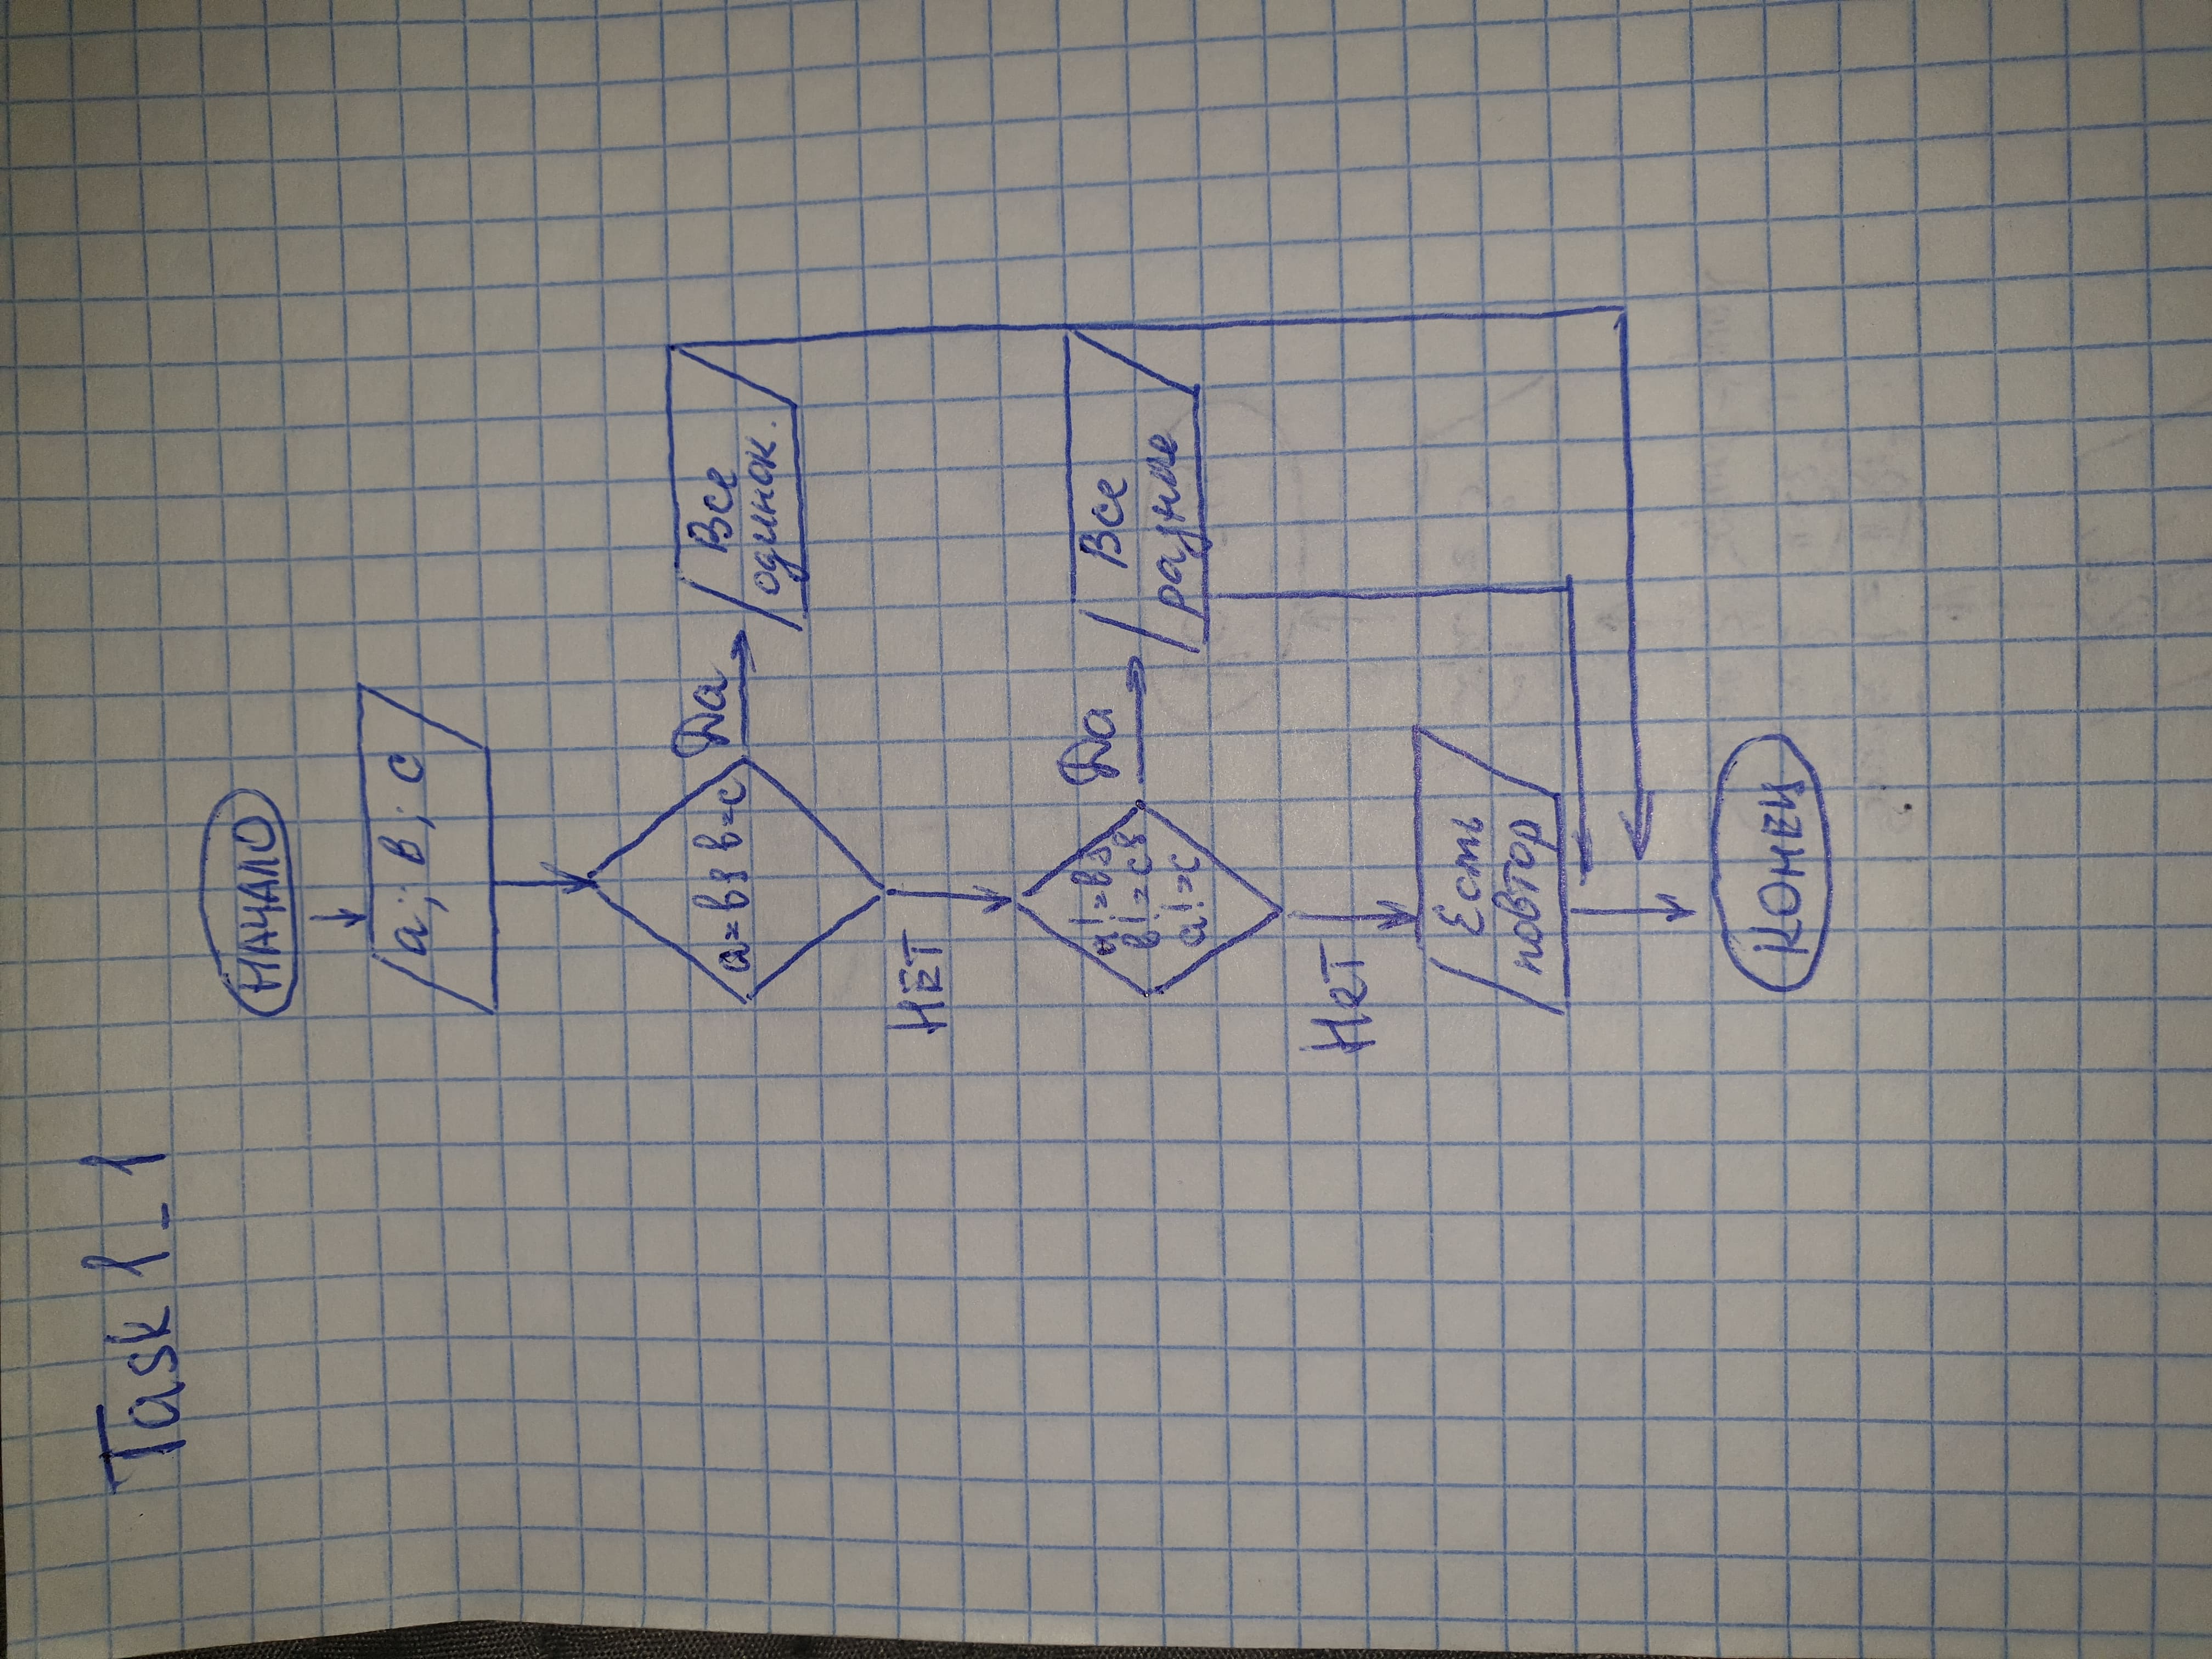 Task 1_1
НАЧАЛО
a; в; с
a=b & b=c
Да
Все
одинок.
НЕТ
a!=b &
b!=c &
a!=c
Да
Все
разные
НЕТ
Есть
повтор
КОНЕЦ